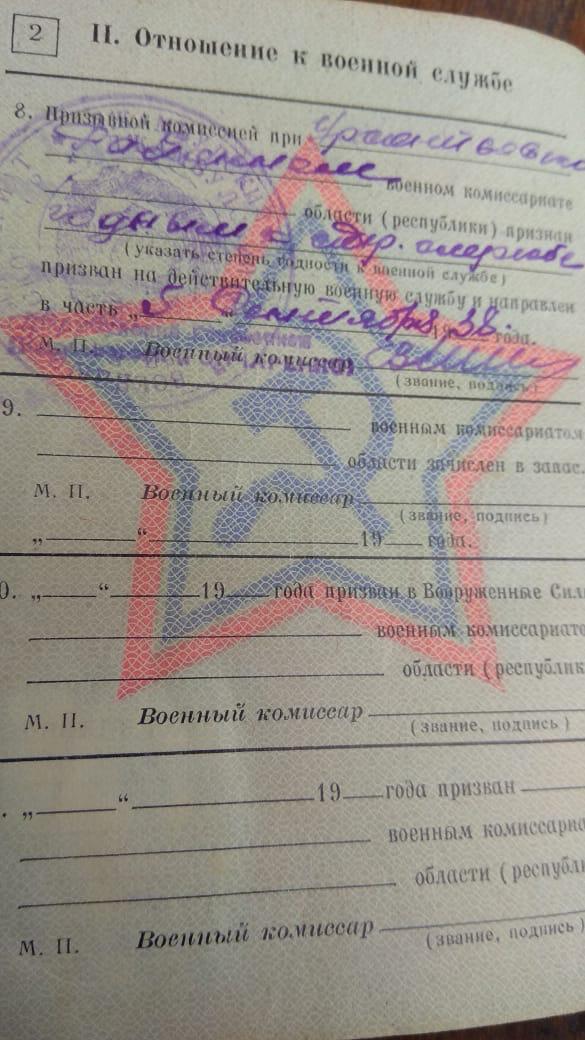 2
II. Отношение к военной службе
8. Призывной комиссией при
военном комиссариате
области (республики) признан
годным к
(указать степень годности к военной службе)
призван на действительную военную службу и направлен
в часть „5“ сентября 1938. года.
М. П. Военный комиссар
(звание, подпись)
9. военным комиссариатом
области зачислен в запас.
М. П. Военный комиссар
(звание, подпись)
„ “ 19 года.
0. „ “ 19 года призван в Вооруженные Сил
военным комиссариато
области (республик
М. П. Военный комиссар
(звание, подпись)
. „ “ 19 года призван
военным комиссариа
области (республи
М. П. Военный комиссар
(звание, подпись)